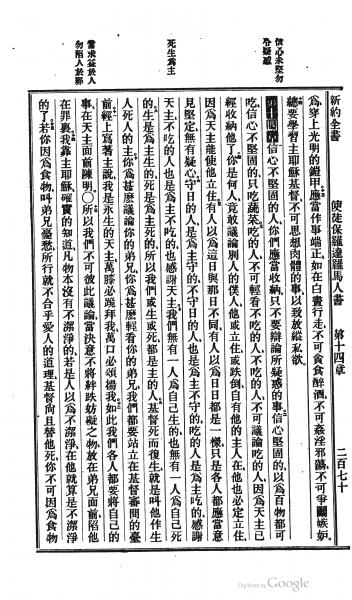 新約全書 使徒保羅達羅馬人書 第十四章 二百七十
信心未堅勿
啓疑惑
死生爲主
當求益於人
勿陷人於罪
爲穿上光明的鎧甲應當作事端正如在白晝行走不可貪食醉酒不可姦淫邪蕩不可爭鬭嫉妒
總要學習主耶穌基督不可思想肉體的事以致放縱私欲
第十四章信心不堅固的人你們應當收納只不要辯論所疑惑的事信心堅固的以爲百物都可
吃信心不堅固的只吃蔬菜吃的人不可輕看不吃的人不吃的人不可議論吃的人因爲天主已
經收納他了你是何人竟敢議論別人的僕人他或立住或跌倒自有他的主人在他也必定立住
因爲天主能使他立住有人以爲這日與那日不同有人以爲日日都是一樣只是各人都應當意
見堅定無有疑心守日的人是爲主守的不守日的人也是爲主不守的吃的人是爲主吃的感謝
天主不吃的人也是爲主不吃的也感謝天主我們無有一人爲自己生的也無有一人爲自己死
的生是爲主生的死是爲主死的所以我們或生或死都是主的人基督死而復生就是叫他作生
人死人的主你爲甚麽議論你的弟兄你爲甚麽輕看你的弟兄我們都要站立在基督審問的臺
前經上寫著主說我是永生的天主萬膝必跪拜我萬口必頌揚我如此我們各人都要將自己的
事在天主面前陳明〇所以我們不可彼此議論當決意不將絆跌妨礙之物放在弟兄面前陷他
在罪裏我靠主耶穌確實的知道凡物本沒有不潔淨的若是人以爲不潔淨在他就算是不潔淨
的了若你因爲食物叫弟兄憂愁所行就不合乎愛人的道理基督尙且替他死你不可因爲食物
Digitized by Google